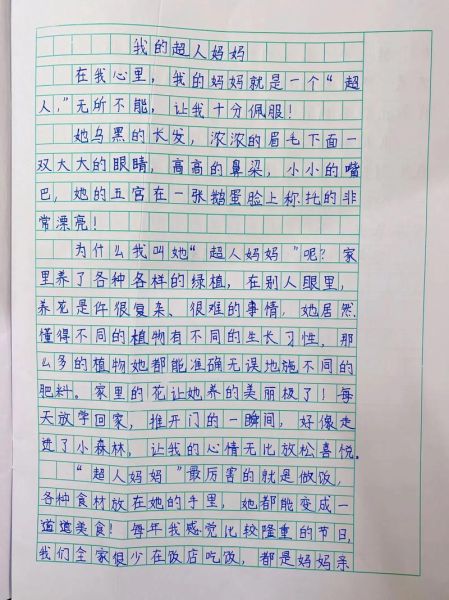 我的超人妈妈
在我心里，我的妈妈就是一个“超
人，”无所不能，让我十分佩服！
她乌黑的长发，浓浓的眉毛下面一
双大大的眼睛，高高的鼻梁，小小的嘴
巴，她的五官在一张鹅蛋脸上称托的非
常漂亮！
为什么我叫她“超人妈妈”呢？家
里养了各种各样的绿植，在别人眼里，
养花是件很复杂、很难的事情，她居然
懂得不同的植物有不同的生长习性，那
么多的植物她都能准确无误地施不同的
肥料。家里的花让她养的美丽极了！每
天放学回家，推开门的一瞬间，好像走
进了小森林，让我的心情无比放松喜悦。
“超人妈妈”最厉害的就是做饭，
各种食材放在她的手里，她都能变成一
道道美食！每年我感觉比较隆重的节日，
我们全家很少在饭店吃饭，都是妈妈亲